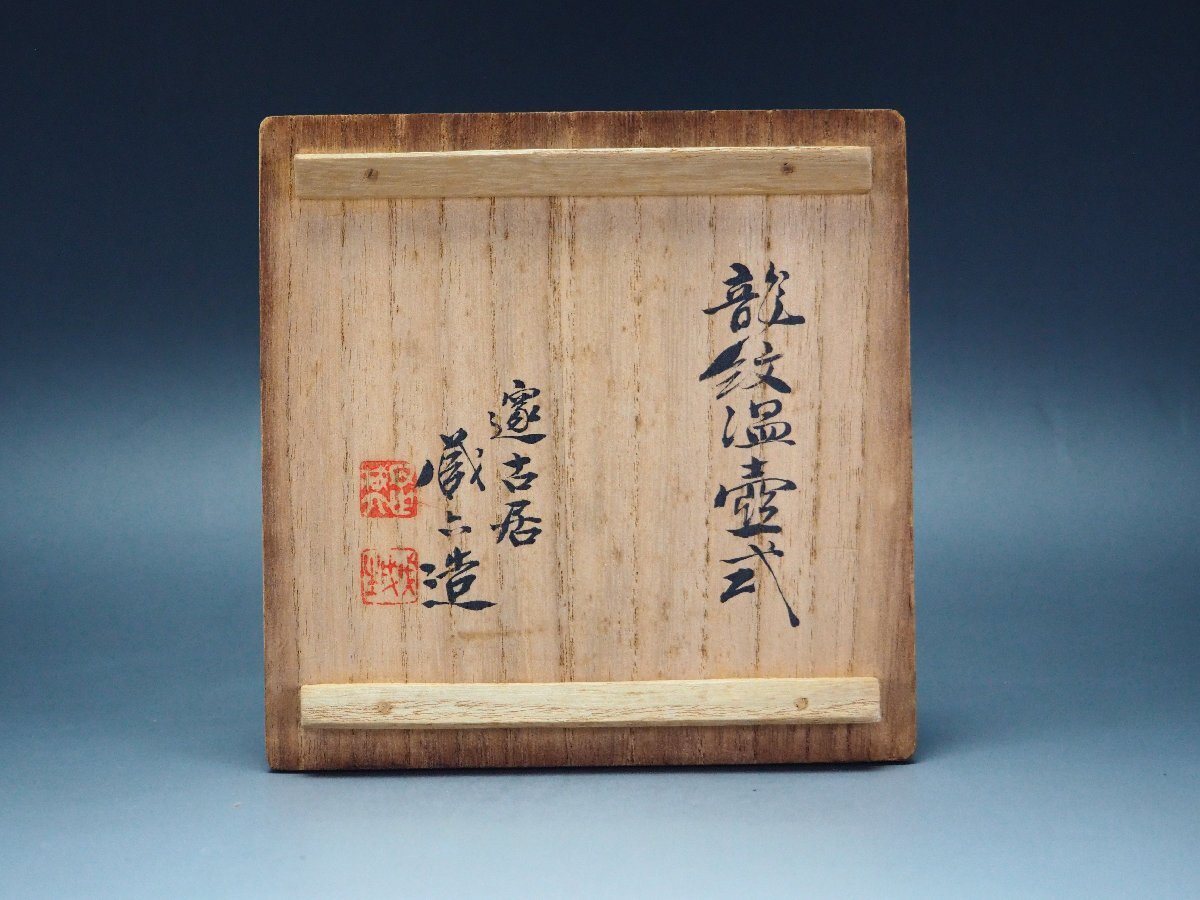 龍紋温壺式
邃古居
蔵六造